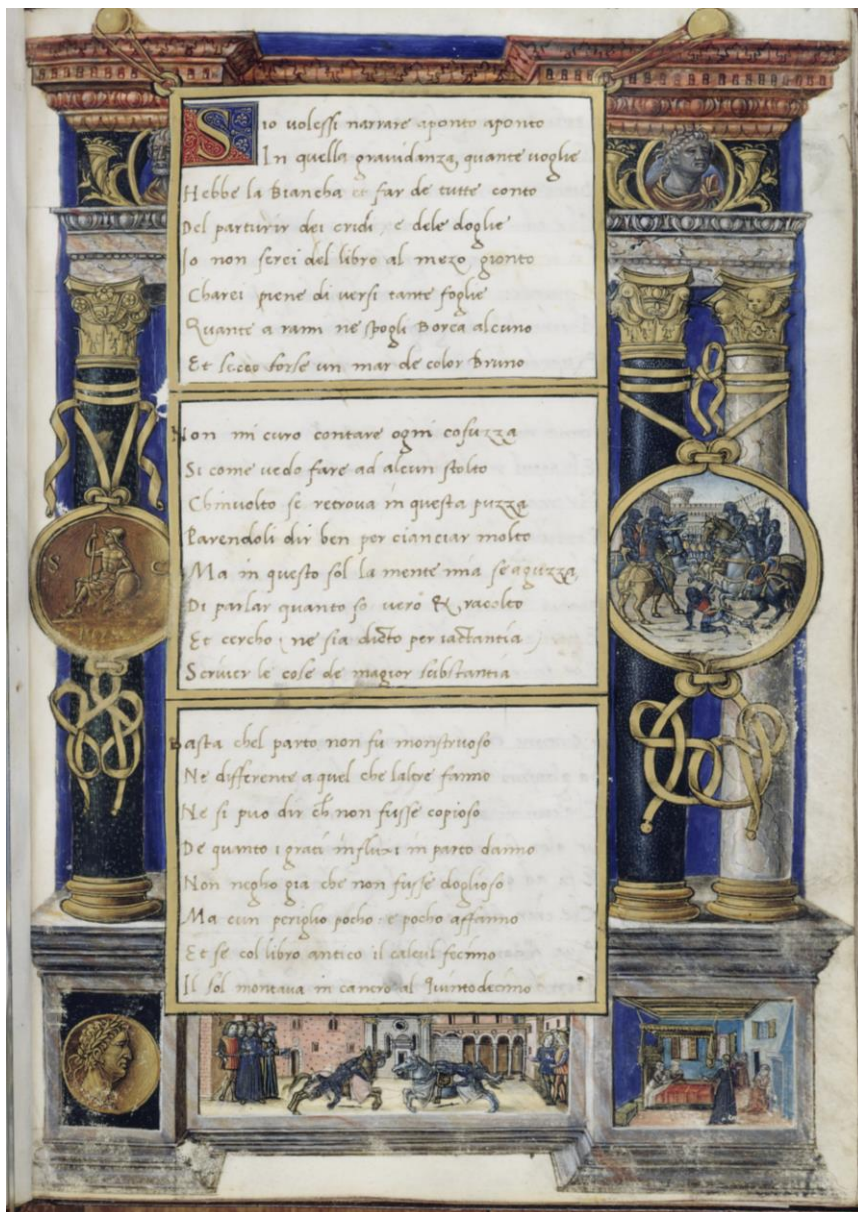 S io volessi narrare aponto aponto
In quella gravidanza, quante voglie
Hebbe la Biancha et far de tutte conto
Del parturir dei cridi, e dele doglie
Io non serei del libro al mezo gionto
Charei piene di versi tante foglie
Quante a rami ne spogli Borea alcuno
Et secco forse un mar de color Bruno
Non mi curo contare ogni cosuzza
Si come vedo fare ad alcun stolto
Chinvolto se retrova in questa puzza
Parendoli dir ben per cianciar molto
Ma in questo sol la mente mia se aguzza,
Di parlar quanto so vero & racolto
Et cercho (ne sia dicto per iactantia)
Scriver le cose de magior substantia
Basta chel parto non fu monstruoso
Ne differente a quel che laltre fanno
Ne si puo dir ch̄ non fusse copioso
De quanto i grati influxi in parto danno
Non negho gia che non fusse doglioso
Ma cun periglio pocho: e pocho affanno
Et se col libro antico il calcul femmo
Il sol montava in cancro al Quintodecimo
S C